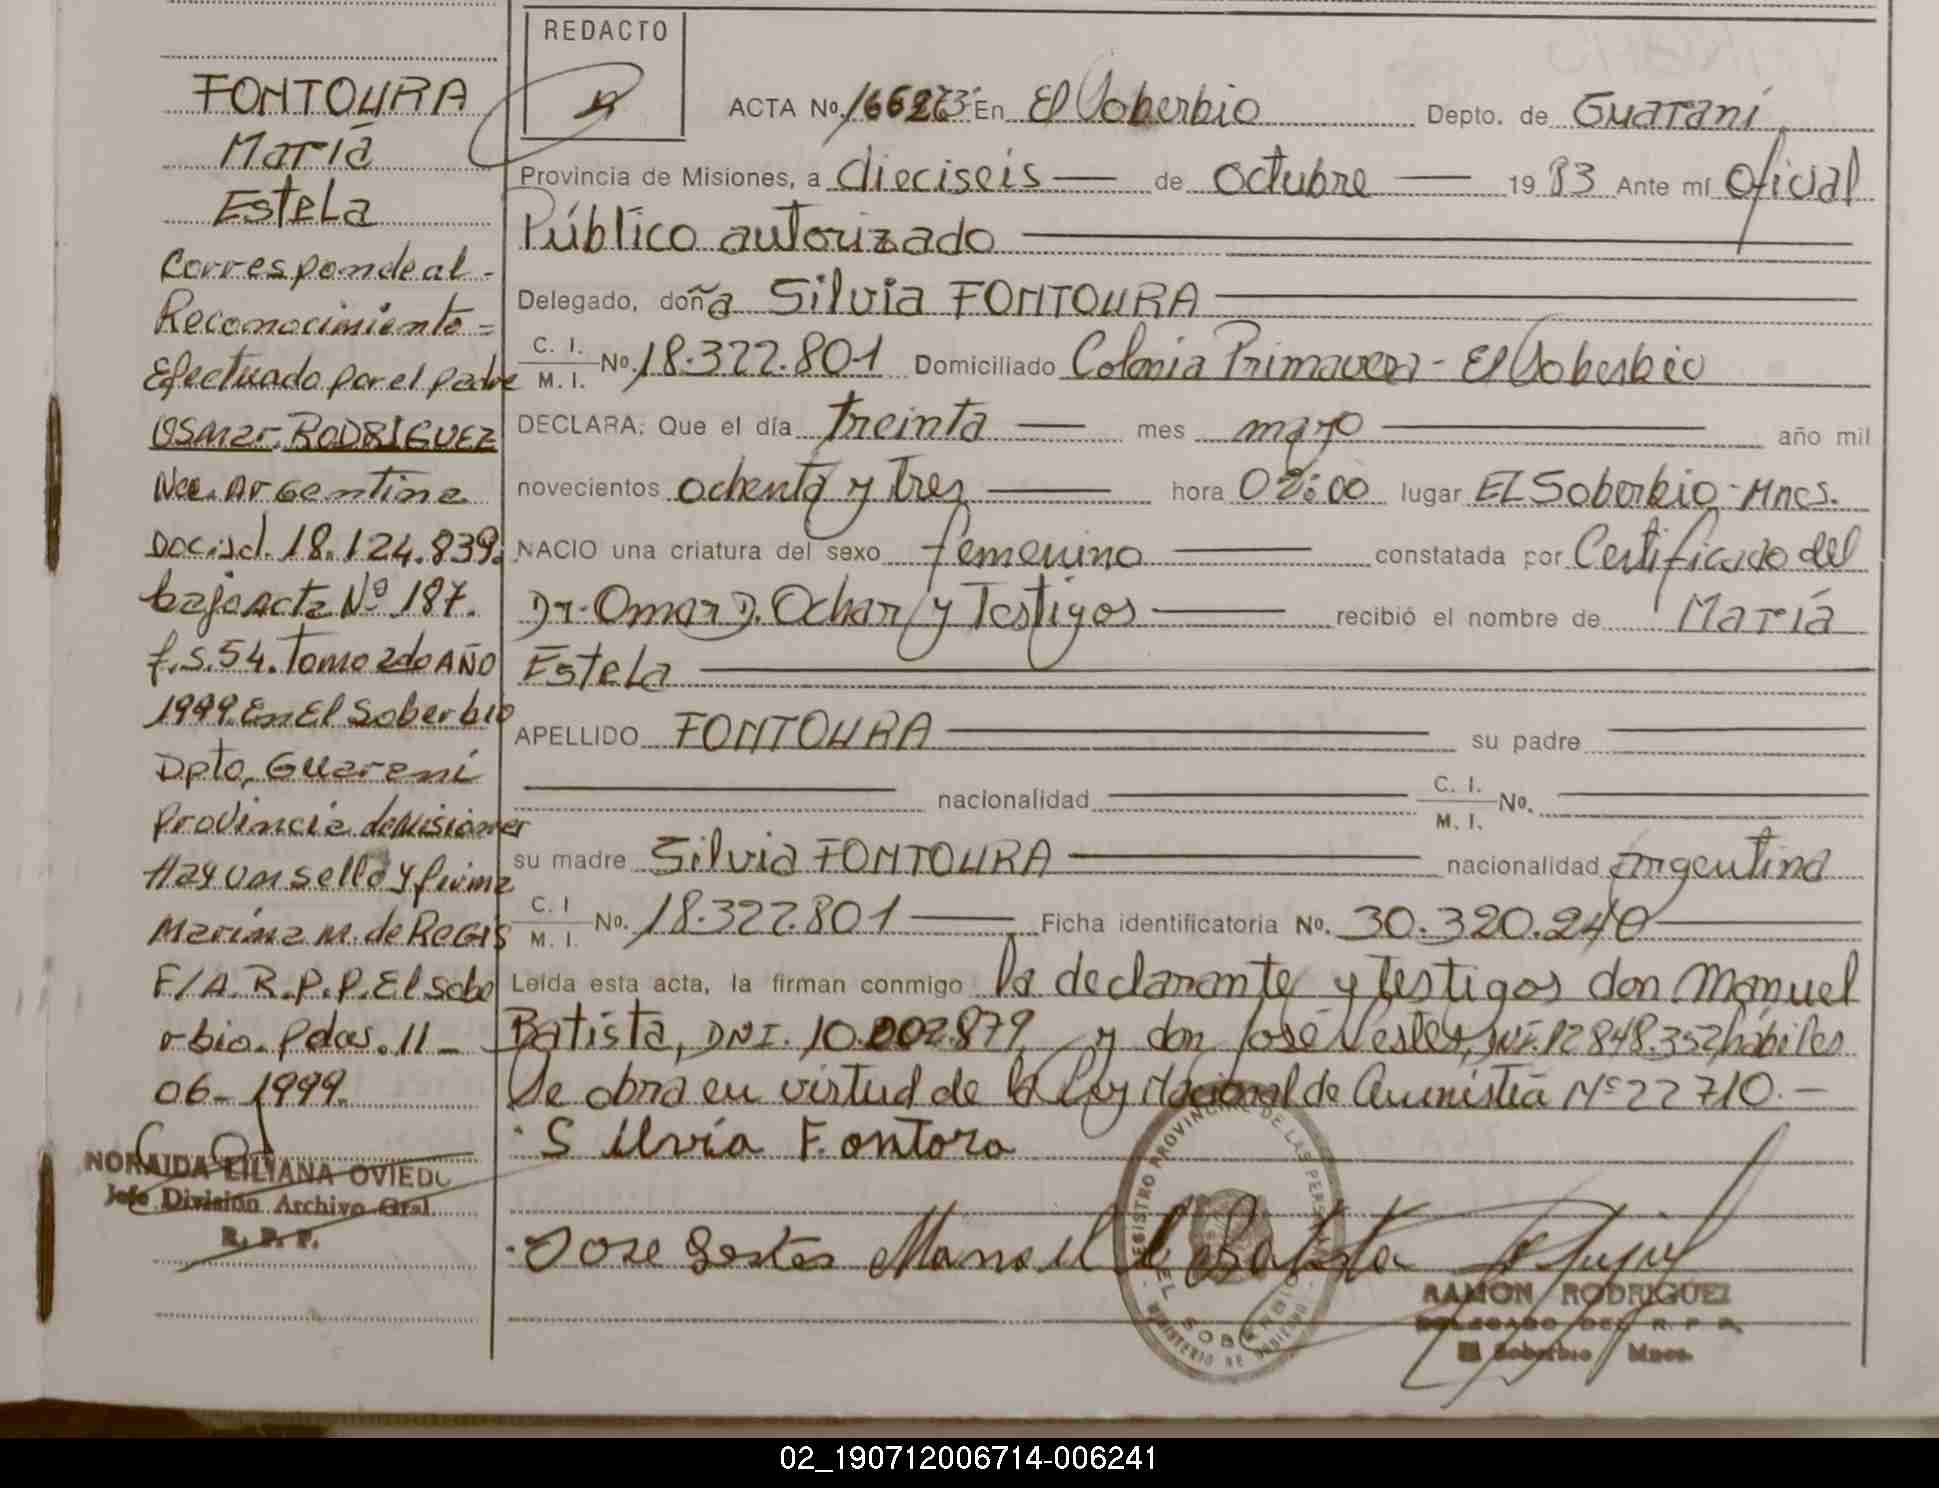 FONTOURA
María
Estela
Corresponde al
Reconocimiento
Efectuado por el padre
Osmar RODRIGUEZ
Nac. Argentina
Doc. id. 18.124.839.
bajo acta Nº 187.
f.s. 54. Tomo 2do AÑO
1999. En El Soberbio
Dpto. Guarani
Provincia de Misiones
Hay un sello y firma
Marina M. de REGIS
F/A. R.P.P. El Sobe
rbio. Pdas. 11-
06-1999.
NORAIDA LILIANA OVIEDO
Jefe División Archivo Gral.
R. P. P.
REDACTO
ACTA No. En El Soberbio Depto. de Guaraní
Provincia de Misiones, a dieciseis de Octubre 1983 Ante mí Oficial
Público autorizado
Delegado, doña Silvia FONTOURA
C. I. / M. I. No. 18.322.801 Domiciliado Colonia Primavera - El Soberbio
DECLARA: Que el día treinta mes mayo año mil
novecientos ochenta y tres hora 02:00 lugar EL Soberbio - Mnes.
NACIO una criatura del sexo femenino constatada por Certificado del
Dr. Omar D. Ochar y Testigos recibió el nombre de María
Estela
APELLIDO FONTOURA su padre
nacionalidad C. I. / M. I. No.
su madre Silvia FONTOURA nacionalidad Argentina
C. I / M. I. No. 18.322.801 Ficha identificatoria No. 30.320.240
Leída esta acta, la firman conmigo la declarante y Testigos don Manuel
Batista, DNI. 10.002.879 y don José DNI. 12848.352 hábiles
Se obra en virtud de la Ley Nacional de Amnistía Nº 22710.-
Silvia Fontora
Jose Manuel Batista
REGISTRO PROVINCIAL DE LAS PERSONAS
EL SOBERBIO
MINISTERIO DE GOBIERNO
RAMON RODRIGUEZ
DELEGADO DEL R. P. P.
El Soberbio Mnes.
02_190712006714-006241